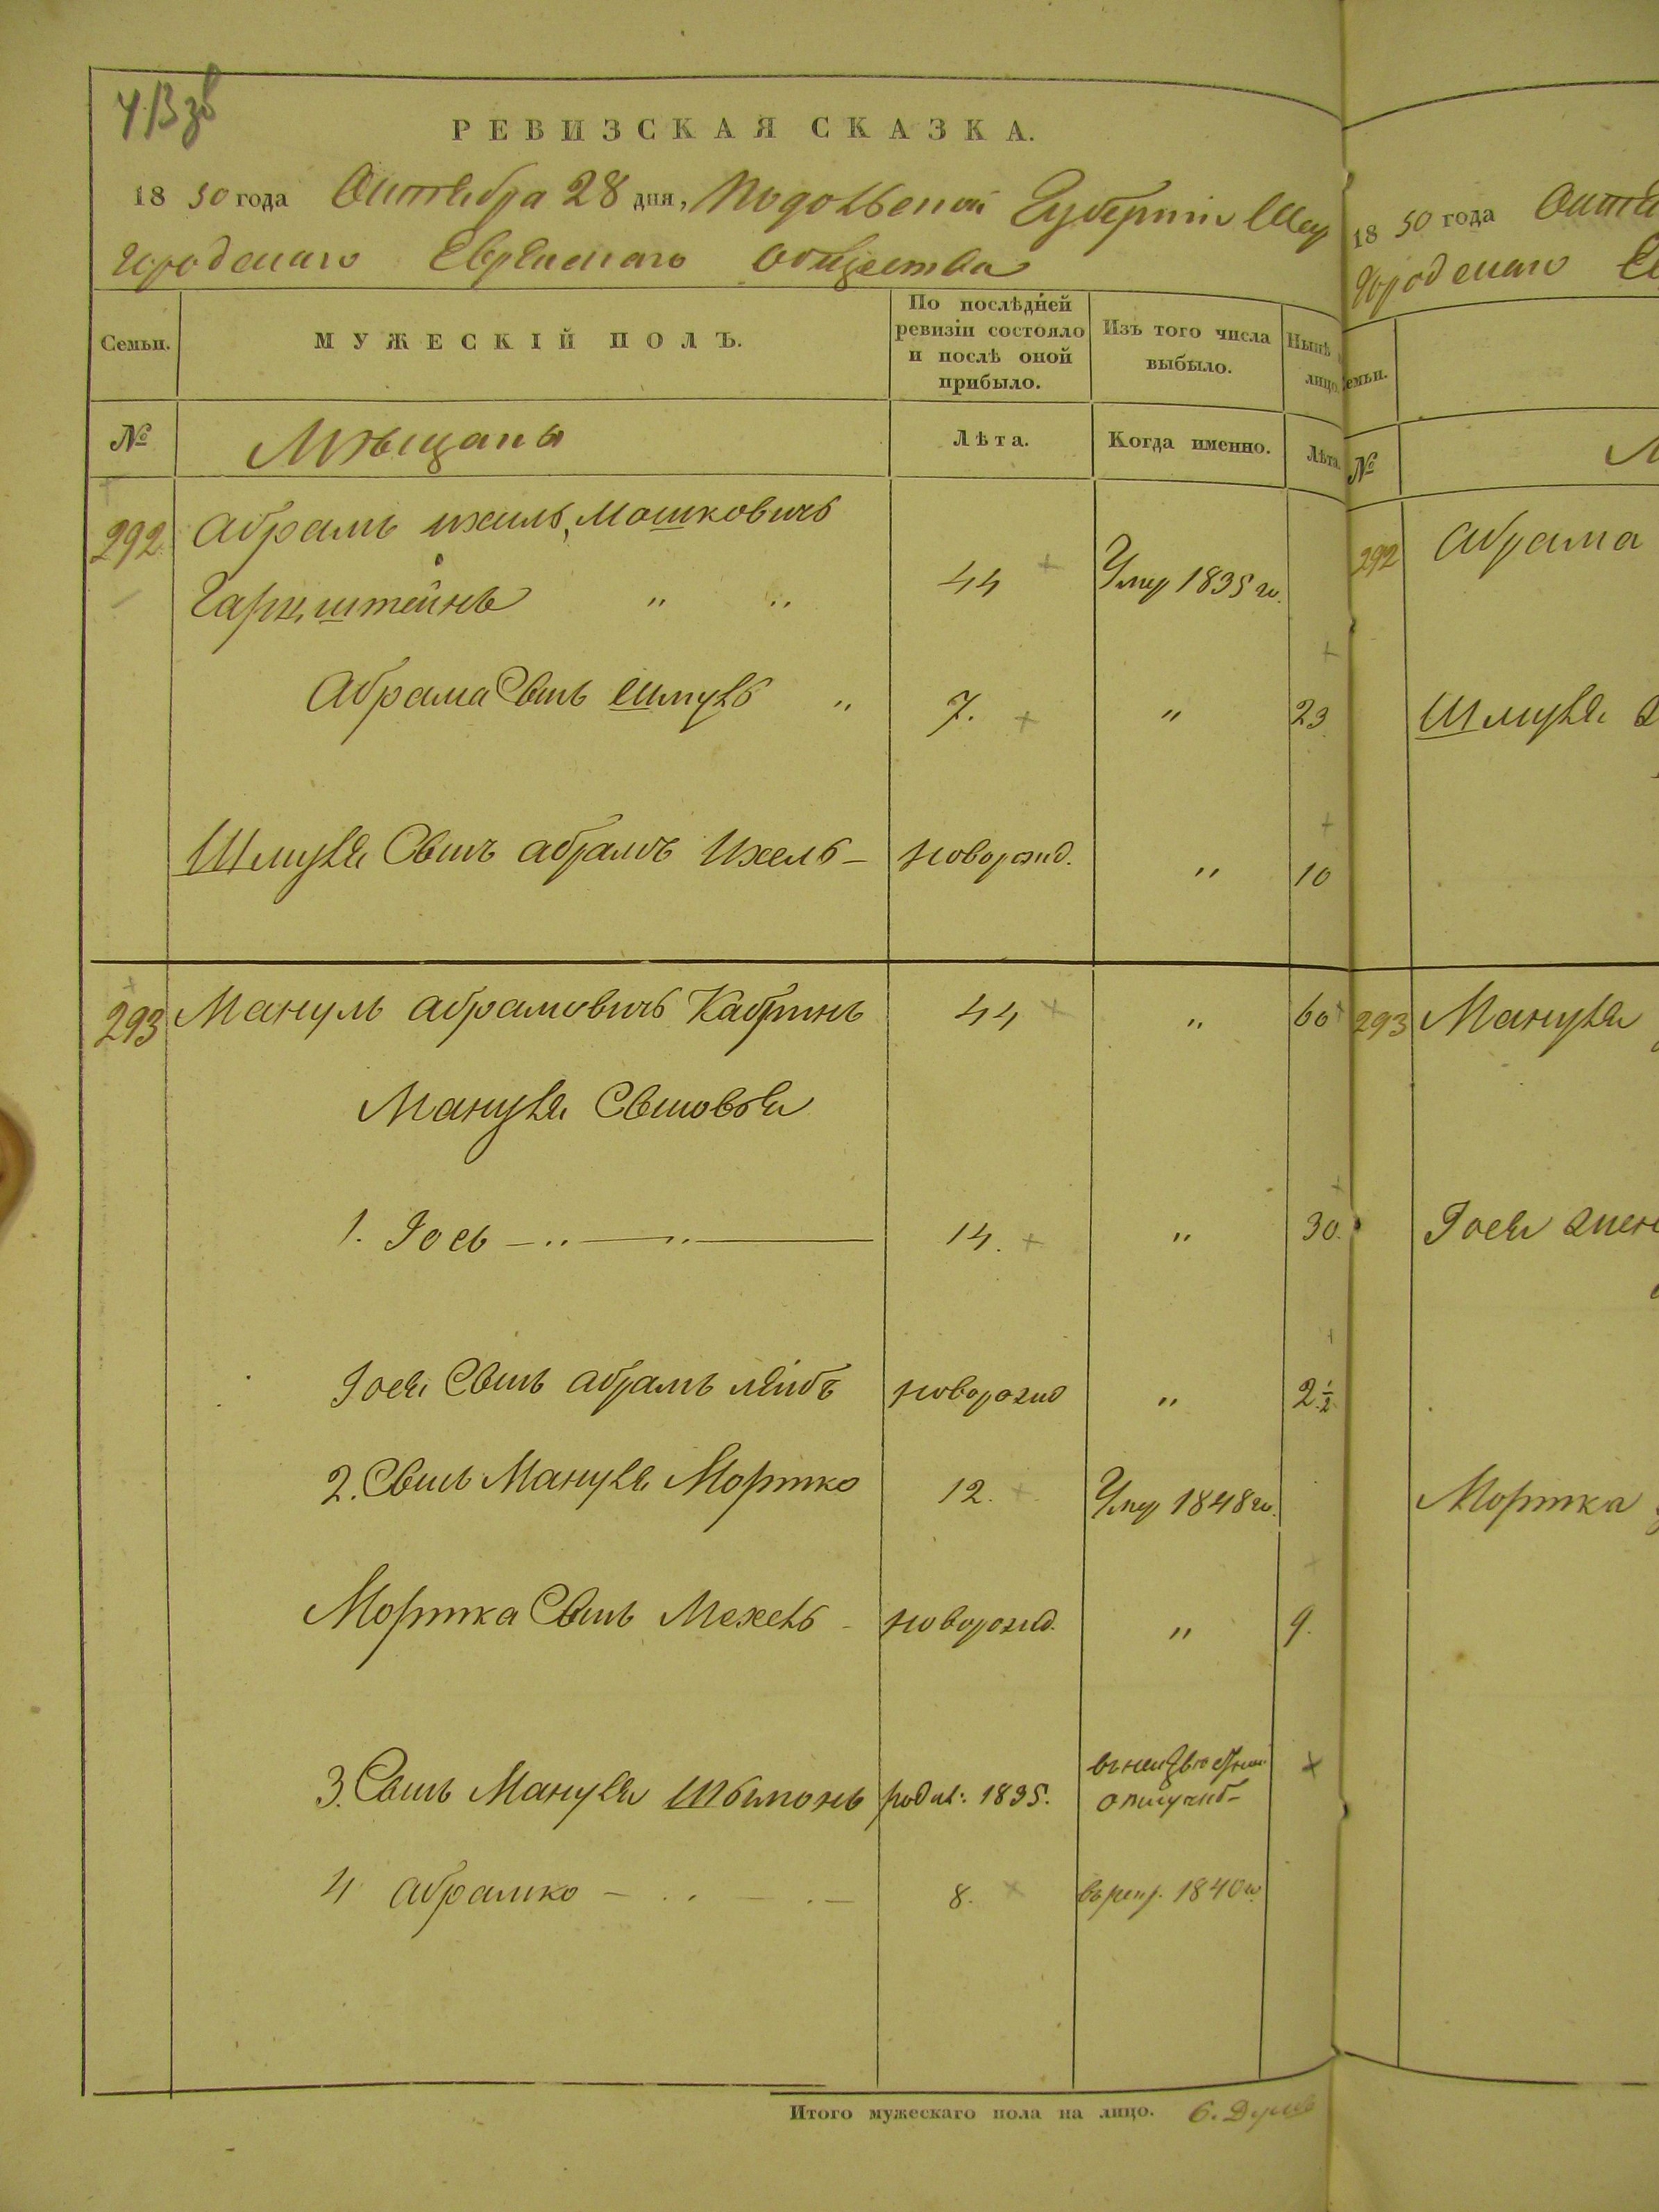 РЕВИЗСКАЯ СКАЗКА.
1850 года Октября 28 дня, Подольской Губернiи Шар
городскаго Еврейскаго Общества
Семьи.
МУЖЕСКIЙ ПОЛЪ.
По послѣдней ревизiи состояло и послѣ оной прибыло.
Изъ того числа выбыло.
Нынѣ лицо.
№
Мѣщаны
Лѣта.
Когда именно.
Лѣта.
292 Абрамъ Ихель Мошковичъ
штейнъ " " 44 Умер 1835 го.
Абрама Сынъ Шмуль " 7. " 23
Шмуля Сынъ Абрамъ Ихель – новорожд. " 10
293 Мануль Абрамовичъ Кабринъ 44 " 60
Мануля Сыновья
1. Iось 14. " 30.
Iося Сынъ Абрамъ Лейбъ новорожд " 2 1/2
2. Сынъ Мануля Мортко 12. Умер 1848 го.
Мортка Сынъ Мехель новорожд. " 9.
3. Сынъ Мануля Шимонъ родил: 1835. въ неизвѣстной отлучкѣ
4 Абрамко 8. въ рекр. 1840 го.
Итого мужескаго пола на лицо. 6. Душъ
1850 года
городскаго
№
292 Абрама
Шмуля
293 Мануля
Iося
Мортка